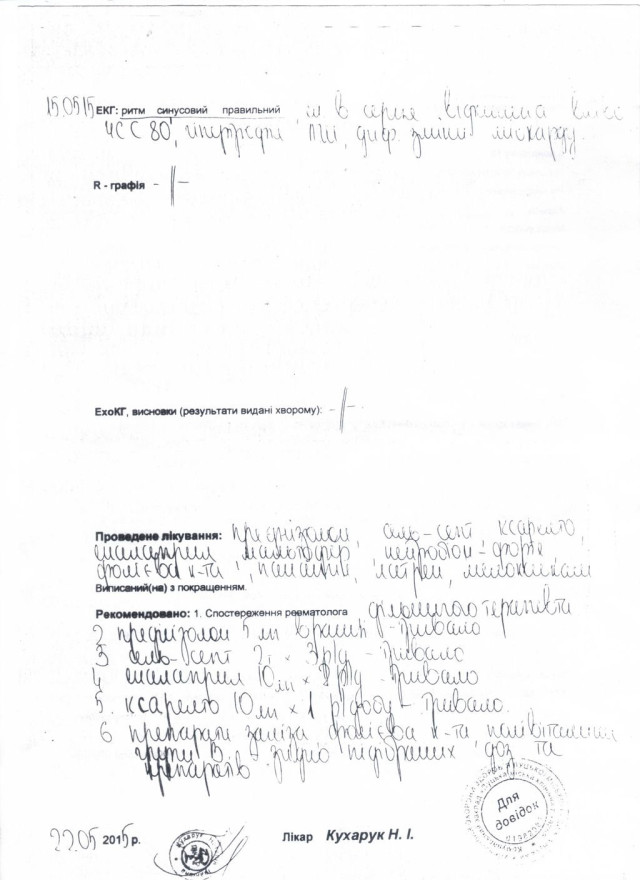 15.05.15 ЕКГ: ритм синусовий правильний
ЧСС 80', гіпертрофія ПШ, диф. зміни міокарду.
R - графія -||-
ЕхоКГ, висновки (результати видані хворому): -||-
Проведене лікування: преднізолон, сель-септ, ксарелто,
еналаприл, мальтофер, нейробион-форте,
фолієва к-та, панангін, мелоксикам
Виписаний(на) з покращенням.
Рекомендовано: 1. Спостереження ревматолога дільничного терапевта
2 преднізолон 5 мг вранці - тривало
3 сель-септ 2т × 3р/д - тривало
4 еналаприл 10мг × 2 р/д - тривало
5. ксарелто 10мг × 1 р/добу - тривало.
6 препарати заліза фолієва к-та полівітаміни
групи В - згідно підібраних доз та
препаратів
22.05 2015 р. Лікар Кухарук Н. І.
Кухарук
Для
довідок